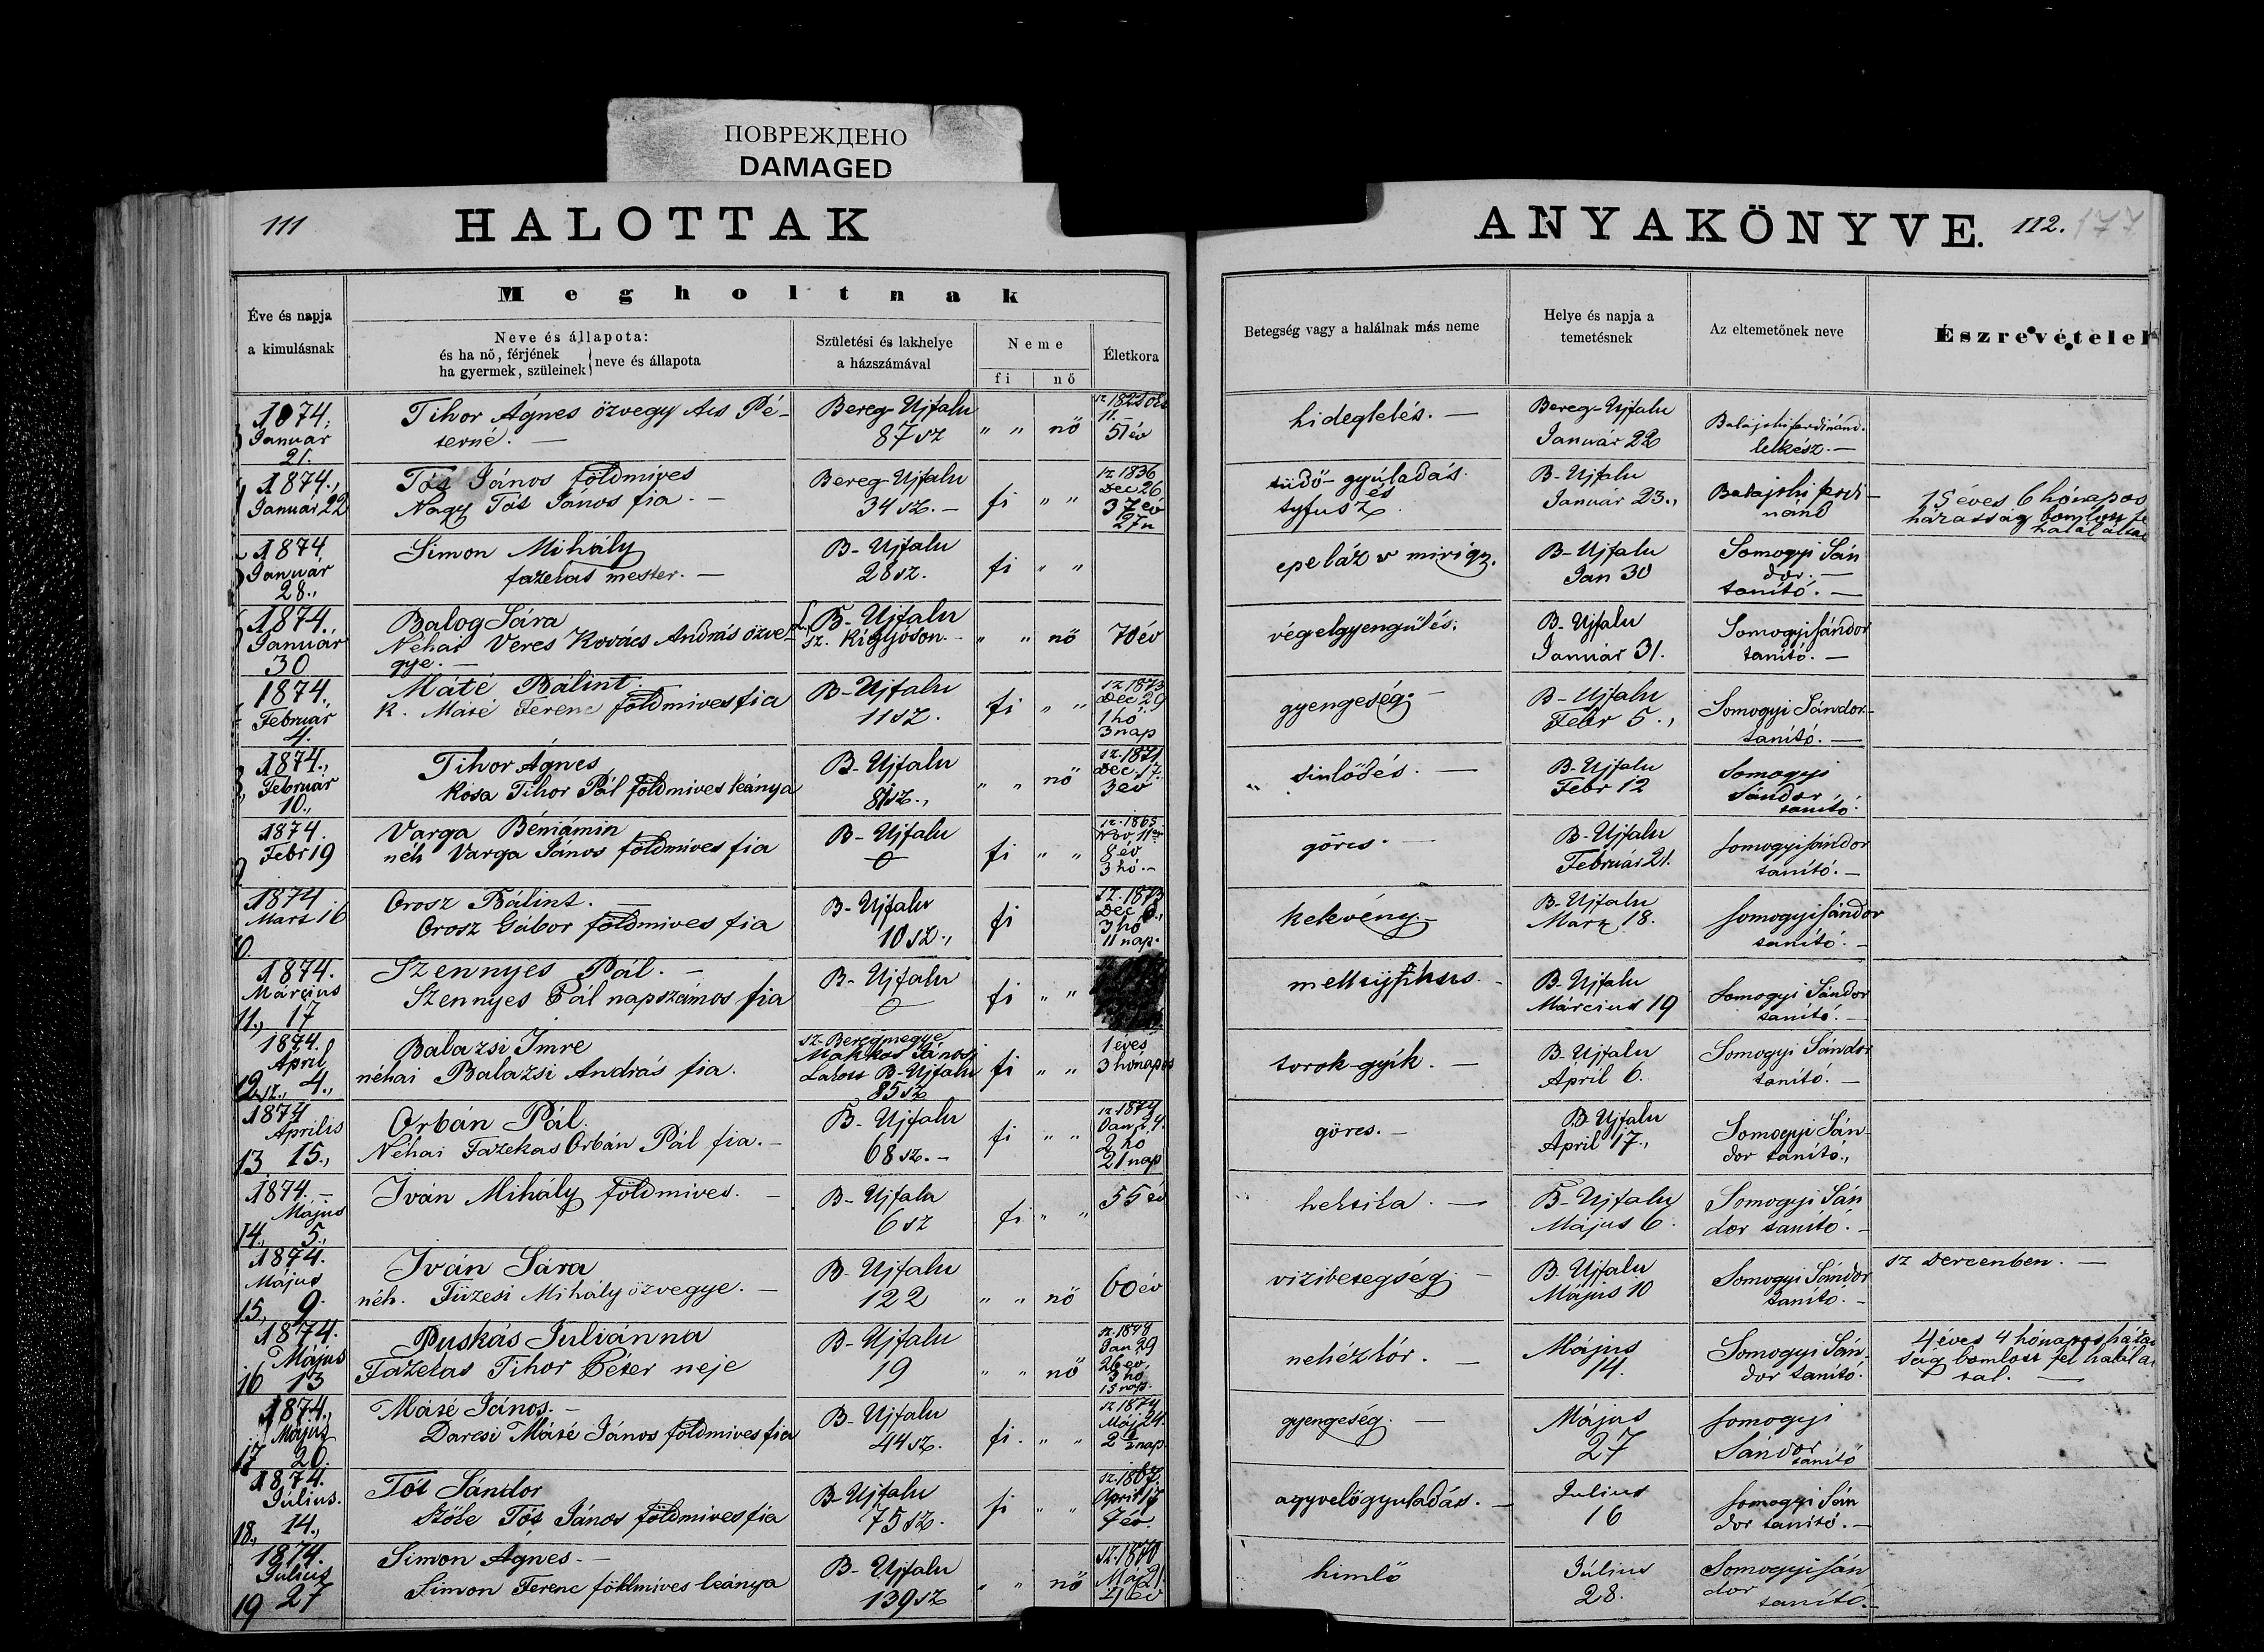 ПОВРЕЖДЕНО
DAMAGED
111
HALOTTAK
ANYAKÖNYVE.
112.
177
Éve és napja
a kimulásnak
Megholtnak
Neve és állapota:
és ha nő, férjének
ha gyermek, szüleinek } neve és állapota
Születési és lakhelye
a házszámával
Neme
fi
nő
Életkora
Betegség vagy a halálnak más neme
Helye és napja a
temetésnek
Az eltemetőnek neve
Észrevételek
1874.
Január
21.
Tihor Ágnes özvegy Ács Pé-
terné. —
Bereg-Ujfalu
87 sz
" " nő
51 év
hideglelés. —
Bereg-Ujfalu
Január 22
lelkész. —
1874.,
Január 22
Tót János földmives
Nagy Tót János fia. —
Bereg-Ujfalu
34 sz. —
fi " "
sz 1836
Dec 26
37 év
27 n
tüdő-gyúladás
és
tyfusz
B-Ujfalu
Január 23.,
Balajthi Ferdi-
nánd
15 éves 6 hónapos
házasság bomlott fe
halálával
1874
Január
28.,
Simon Mihály
fazekas mester. —
B-Ujfalu
28 sz.
fi " "
epeláz s mirigy.
B-Ujfalu
Jan 30
Somogyi Sán
dor. —
tanító. —
1874.
Január
30
Balog Sára
Néhai Veres Kovács András özve-
gye. —
B-Ujfalu
sz. Kigyóson. -
" " nő
70 év
végelgyengülés.
B-Ujfalu
Január 31.
Somogyi Sándor
tanító. —
1874.,
Február
4.
Máté Bálint
K. Máté Ferenc földmives fia
B-Ujfalu
11 sz.
fi " "
sz 1873
Dec 29
1 hó
3 nap
gyengeség. —
B-Ujfalu
Febr 5.,
Somogyi Sándor
tanító. —
1874.,
Február
10.,
Tihor Ágnes
Kósa Tihor Pál földmives leánya
B-Ujfalu
81 sz.,
" " nő
sz. 1871
Dec. 17.
3 év
sinlődés. —
B-Ujfalu
Febr 12
Somogyi
Sándor
tanító.
1874.
Febr 19
Varga Béniámin
néh Varga János földmives fia
B-Ujfalu
0
fi " "
sz. 1865
Nov 11
8 év
3 hó. —
görcs. —
B-Ujfalu
Február 21.
Somogyi Sándor
tanító. —
1874
Mart 16
10.
Orosz Bálint. —
Orosz Gábor földmives fia
B-Ujfalu
10 sz.,
fi
sz. 1873
Dec
3 hó
11 nap.
kekvény. —
B-Ujfalu
Marz 18.
Somogyi Sándor
tanító. —
1874.
Március
11., 17
Szennyes Pál. —
Szennyes Pál napszámos fia
B-Ujfalu
0
fi " "
B-Ujfalu
Március 19
Somogyi Sándor
tanító. —
1874.
April
12 sz., 4.,
Balazsi Imre
néhai Balazsi András fia.
sz. Beregmegye
Makkos János
Lakott B-Ujfalu
85 sz
fi " "
1 éves
3 hónapos
torok-gyík. —
B-Ujfalu
April 6.
Somogyi Sándor
tanító. —
1874
Aprilis
13 15.,
Orbán Pál.
Néhai Fazekas Orbán Pál fia. —
B-Ujfalu
68 sz. —
fi " "
sz. 1874
Jan 24.
2 hó
21 nap
görcs. —
B-Ujfalu
April 17.,
Somogyi Sán-
dor tanító.,
1874. —
Május
14., 5.,
Iván Mihály földmives. —
B-Ujfalu
6 sz
fi " "
55 év
hektika. —
B-Ujfalu
Május 6.
Somogyi Sán
dor tanító. —
1874.
Május
15., 9.
Iván Sára
néh. Füzesi Mihály özvegye. —
B-Ujfalu
122
" " nő
60 év
vizibetegség. —
B-Ujfalu
Május 10
Somogyi Sándor
tanító. —
sz Dercenben. —
1874.
Május
16 13
Puskás Juliánna
Fazekas Tihor Péter neje
B-Ujfalu
19
" " nő
sz. 1848
Jan 29
26 év
3 hó
15 nap.
nehézkór. —
Május
14.
Somogyi Sán
dor tanító.
4 éves 4 hónapos háza
ság bomlott fel halálá
val. —
1874.,
Május
17 26.
Máté János. —
Darcsi Máté János földmives fia
B-Ujfalu
44 sz.
fi. " "
sz 1874
Máj 24.
2 1/2 nap
gyengeség. —
Május
27
Somogyi
Sándor
tanító
1874.
Július.
18., 14.,
Tót Sándor
Szőke Tót János földmives fia
B-Ujfalu
75 sz.
fi " "
sz. 1867.
April 17
7 év.
agyvelőgyuladás. —
Julius
16
Somogyi Sán
dor tanító. —
1874.
Julius
19 27
Simon Ágnes. —
Simon Ferenc földmives leánya
B-Ujfalu
139 sz
" " nő
sz. 1870
Máj 21.
4 év
himlő
Július
28.
Somogyi Sán
dor
tanító. —